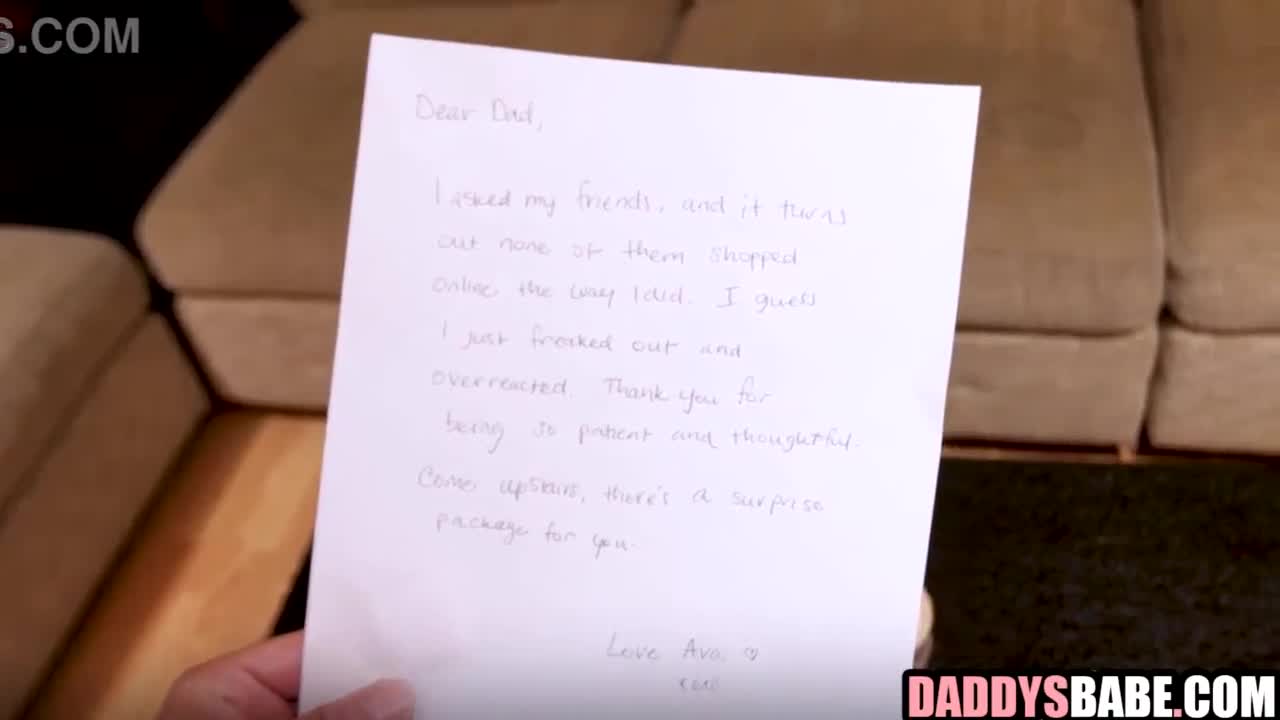 S.COM
Dear Dad,
I asked my friends, and it turns
out none of them shopped
online the way I did. I guess
I just freaked out and
overreacted. Thank you for
being so patient and thoughtful.
Come upstairs, there's a surprise
package for you.
Love Ava ♡
xoxo
DADDYSBABE.COM